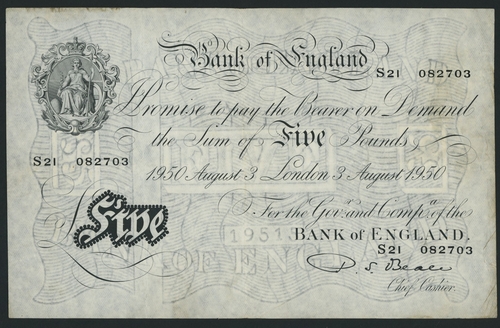 Bank of England
S21 082703
Promise to pay the Bearer on Demand
the Sum of Five Pounds
S21 082703
1950 August 3 London 3 August 1950
For the Govr. and Compa. of the
BANK of ENGLAND.
Five
S21 082703
Chief Cashier.